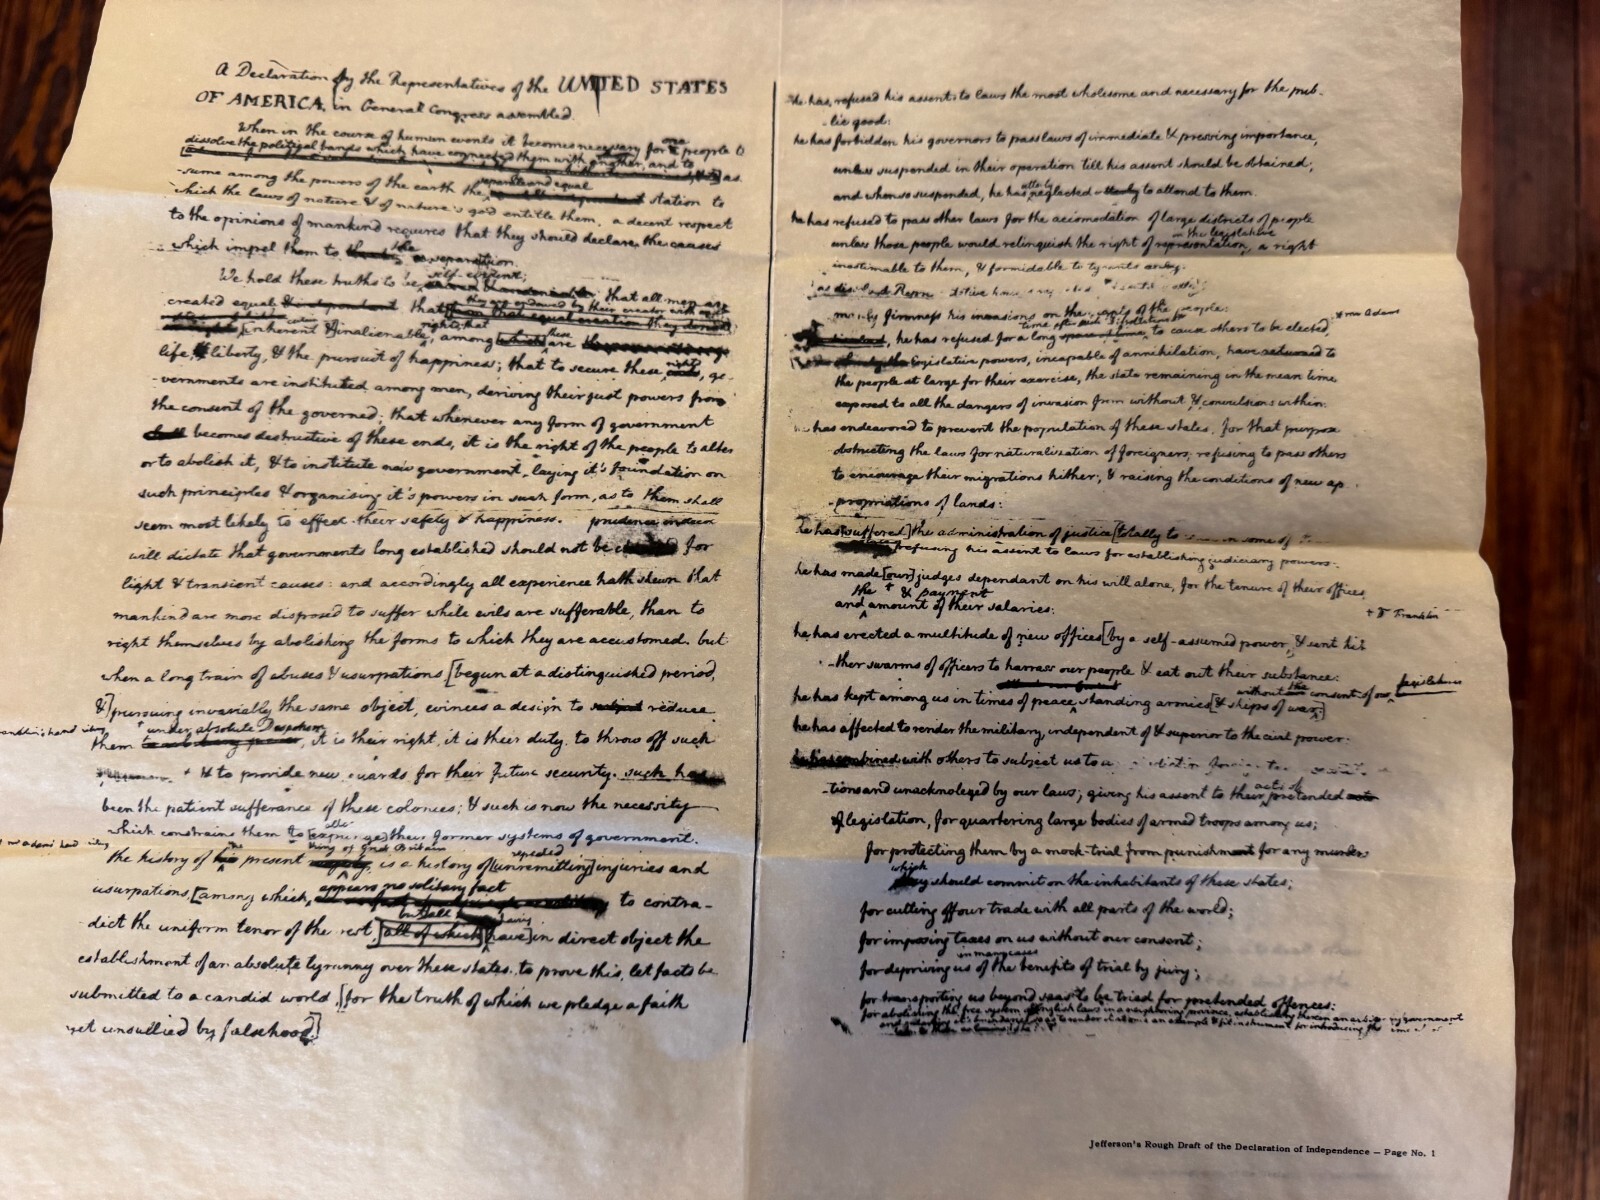 A Declaration by the Representatives of the UNITED STATES
OF AMERICA, in General Congress assembled.
When in the course of human events it becomes necessary for one people to
dissolve the political bands which have connected them with another, and to as-
-sume among the powers of the earth the separate and equal station to
which the laws of nature & of nature's god entitle them, a decent respect
to the opinions of mankind requires that they should declare the causes
which impel them to the separation.
We hold these truths to be self-evident; that all men are
created equal that they are endowed by their creator with
inherent & inalienable rights; that among [which] these are
life, liberty, & the pursuit of happiness; that to secure these rights, go-
-vernments are instituted among men, deriving their just powers from
the consent of the governed; that whenever any form of government
becomes destructive of these ends, it is the right of the people to alter
or to abolish it, & to institute new government, laying it's foundation on
such principles & organising it's powers in such form, as to them shall
seem most likely to effect their safety & happiness. prudence indeed
will dictate that governments long established should not be changed for
light & transient causes: and accordingly all experience hath shewn that
mankind are more disposed to suffer while evils are sufferable, than to
right themselves by abolishing the forms to which they are accustomed. but
when a long train of abuses & usurpations [begun at a distinguished period,
&] pursuing invariably the same object, evinces a design to subject reduce
them under absolute Despotism, it is their right, it is their duty, to throw off such
+ & to provide new guards for their future security. such has
been the patient sufferance of these colonies; & such is now the necessity
which constrains them to [expunge] alter their former systems of government.
the history of his the present king of Great Britain is a history of [unremitting] repeated injuries and
usurpations, [among which, appears no solitary fact to contra-
-dict the uniform tenor of the rest, but all [all of which] [have] having in direct object the
establishment of an absolute tyranny over these states. to prove this, let facts be
submitted to a candid world, [for the truth of which we pledge a faith
yet unsullied by falsehood]
he has refused his assent to laws the most wholesome and necessary for the pub-
-lic good:
he has forbidden his governors to pass laws of immediate & pressing importance,
unless suspended in their operation till his assent should be obtained;
and when so suspended, he has utterly neglected utterly to attend to them.
he has refused to pass other laws for the accomodation of large districts of people
unless those people would relinquish the right of representation in the legislature, a right
inestimable to them, & formidable to tyrants only.
firmness his invasions on the rights of the people:
he has refused for a long time after such dissolutions to cause others to be elected,
legislative powers, incapable of annihilation, have returned to
the people at large for their exercise, the state remaining in the mean time
exposed to all the dangers of invasion from without & convulsions within.
has endeavored to prevent the population of these states; for that purpose
obstructing the laws for naturalization of foreigners; refusing to pass others
to encourage their migrations hither; & raising the conditions of new ap-
-propriations of lands:
he has [suffered] the administration of justice [totally to in some of
refusing his assent to laws for establishing judiciary powers:
he has made [our] judges dependant on his will alone, for the tenure of their offices,
and the + & payment amount of their salaries:
+ Dr Franklin
he has erected a multitude of new offices [by a self-assumed power, & sent hi-
-ther swarms of officers to harrass our people & eat out their substance:
he has kept among us in times of peace, standing armies [& ships of war;] without the consent of our legislatures
he has affected to render the military, independent of & superior to the civil power:
he has combined with others to subject us to a
-tions and unacknoleged by our laws; giving his assent to their acts of pretended acts
of legislation, for quartering large bodies of armed troops among us;
for protecting them by a mock-trial from punishment for any murders
which they should commit on the inhabitants of these states;
for cutting off our trade with all parts of the world;
for imposing taxes on us without our consent;
for depriving us in many cases of the benefits of trial by jury;
for transporting us beyond seas to be tried for pretended offences:
for abolishing the free system of English laws in a neighboring province, establishing therein an arbitrary government
Jefferson's Rough Draft of the Declaration of Independence — Page No. 1